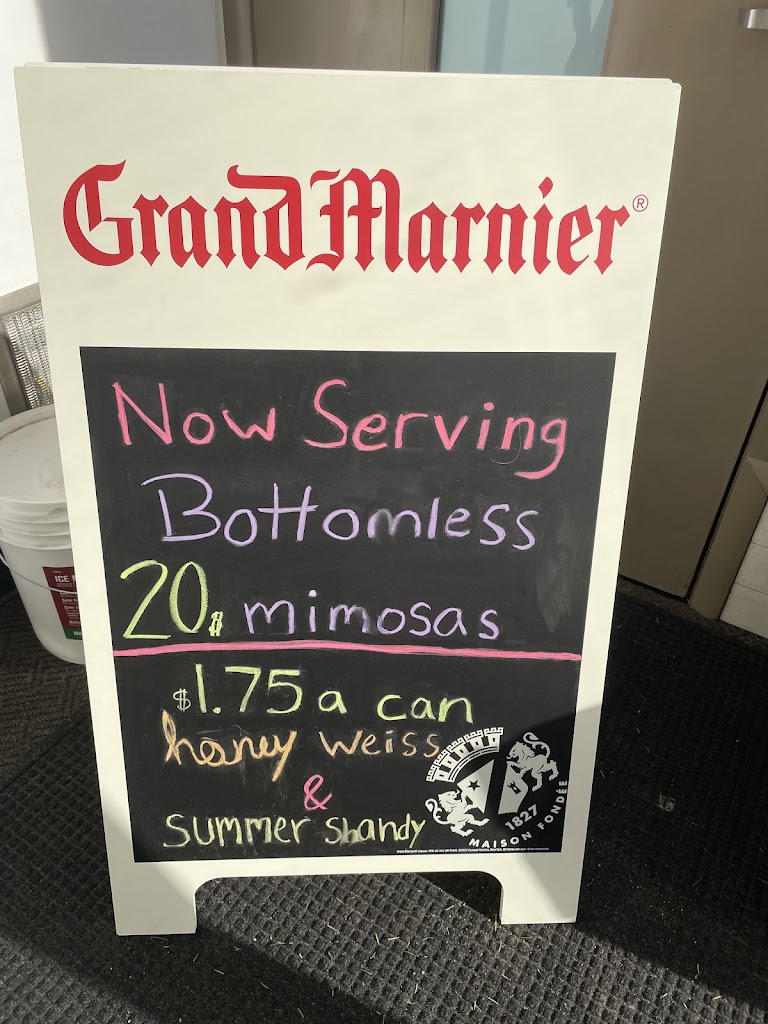 Grand Marnier®
Now Serving
Bottomless
20$ mimosas
$1.75 a can
honey weiss
&
summer shandy
1827
MAISON FONDÉE
ICE